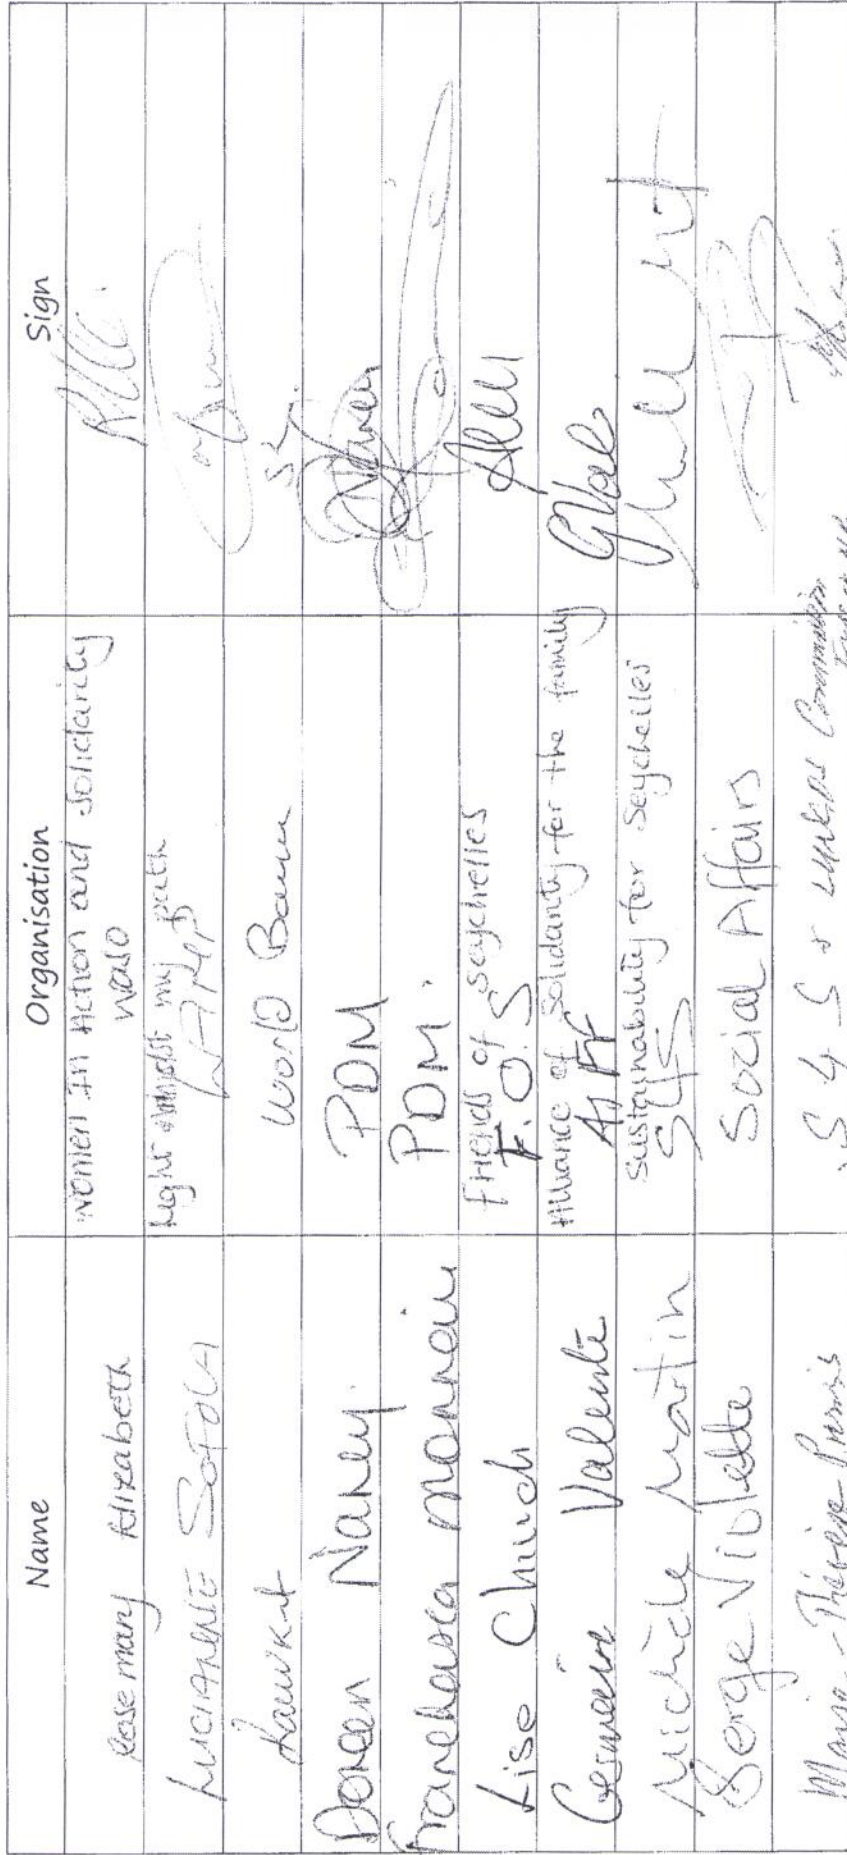 Name Organisation Sign
Rose mary Elizabeth Women In Action and Solidarity
WASO
LUCIANNE SOFOLA Light Amidst my path
LAMP
World Bank
Doreen Naney. PDM
PDM.
Lise Church Friends of Seychelles
F.O.S
Germaine Valente Alliance of Solidarity for the family
ASFF GVal
Michele Martin Sustainability for Seychelles
S4S
Serge Violette Social Affairs
Marie-Thérèse Purvis S4S +